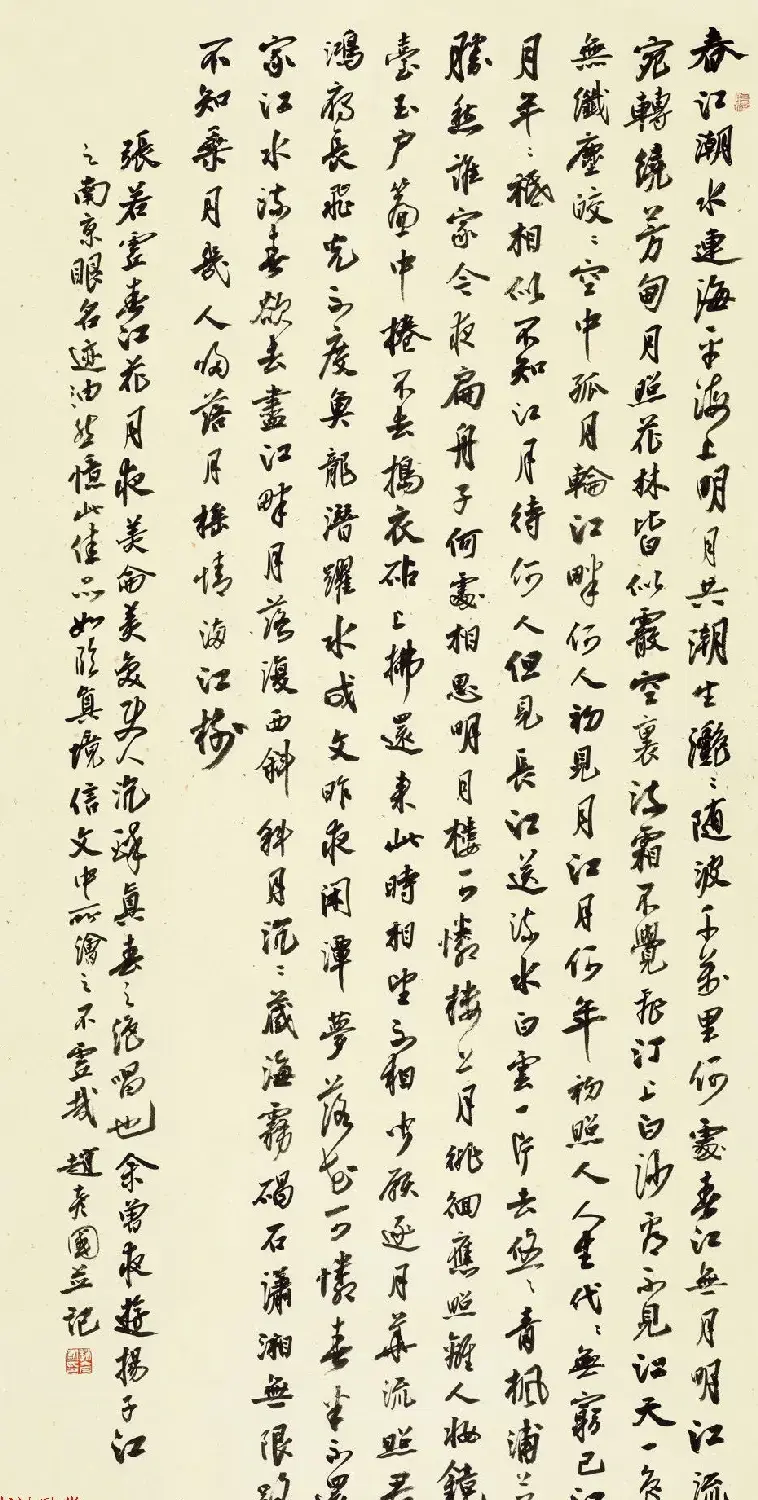 春江潮水連海平海上明月共潮生灔〻随波千萬里何處春江無月明江流
宛轉繞芳甸月照花林皆似霰空裏流霜不覺飛汀上白沙看不見江天一色
無纖塵皎〻空中孤月輪江畔何人初見月江月何年初照人人生代〻無窮已江
月年〻祗相似不知江月待何人但見長江送流水白雲一片去悠〻青楓浦上
勝愁誰家今夜扁舟子何處相思明月樓可憐樓上月徘徊應照離人妝鏡
臺玉户簾中捲不去搗衣砧上拂還來此時相望不相聞願逐月華流照君
鴻雁長飛光不度魚龍潛躍水成文昨夜閑潭夢落花可憐春半不還
家江水流春欲去盡江畔月落復西斜斜月沉〻藏海霧碣石瀟湘無限路
不知乘月幾人歸落月摇情满江樹
張若虚春江花月夜美侖美奂使人沉 真春之绝唱也余曾夜遊揚子江
之南京眼名迹油然憶此佳品如臨真境信文中所繪之不虚哉趙彦國並記